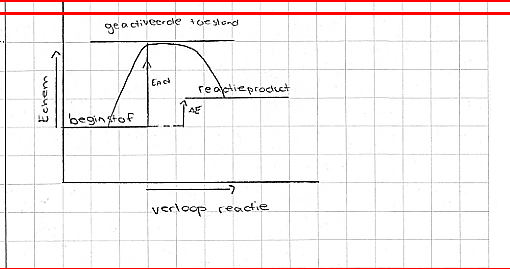 geactiveerde toestand
Echem
Eact
reactieproduct
ΔE
beginstof
verloop reactie